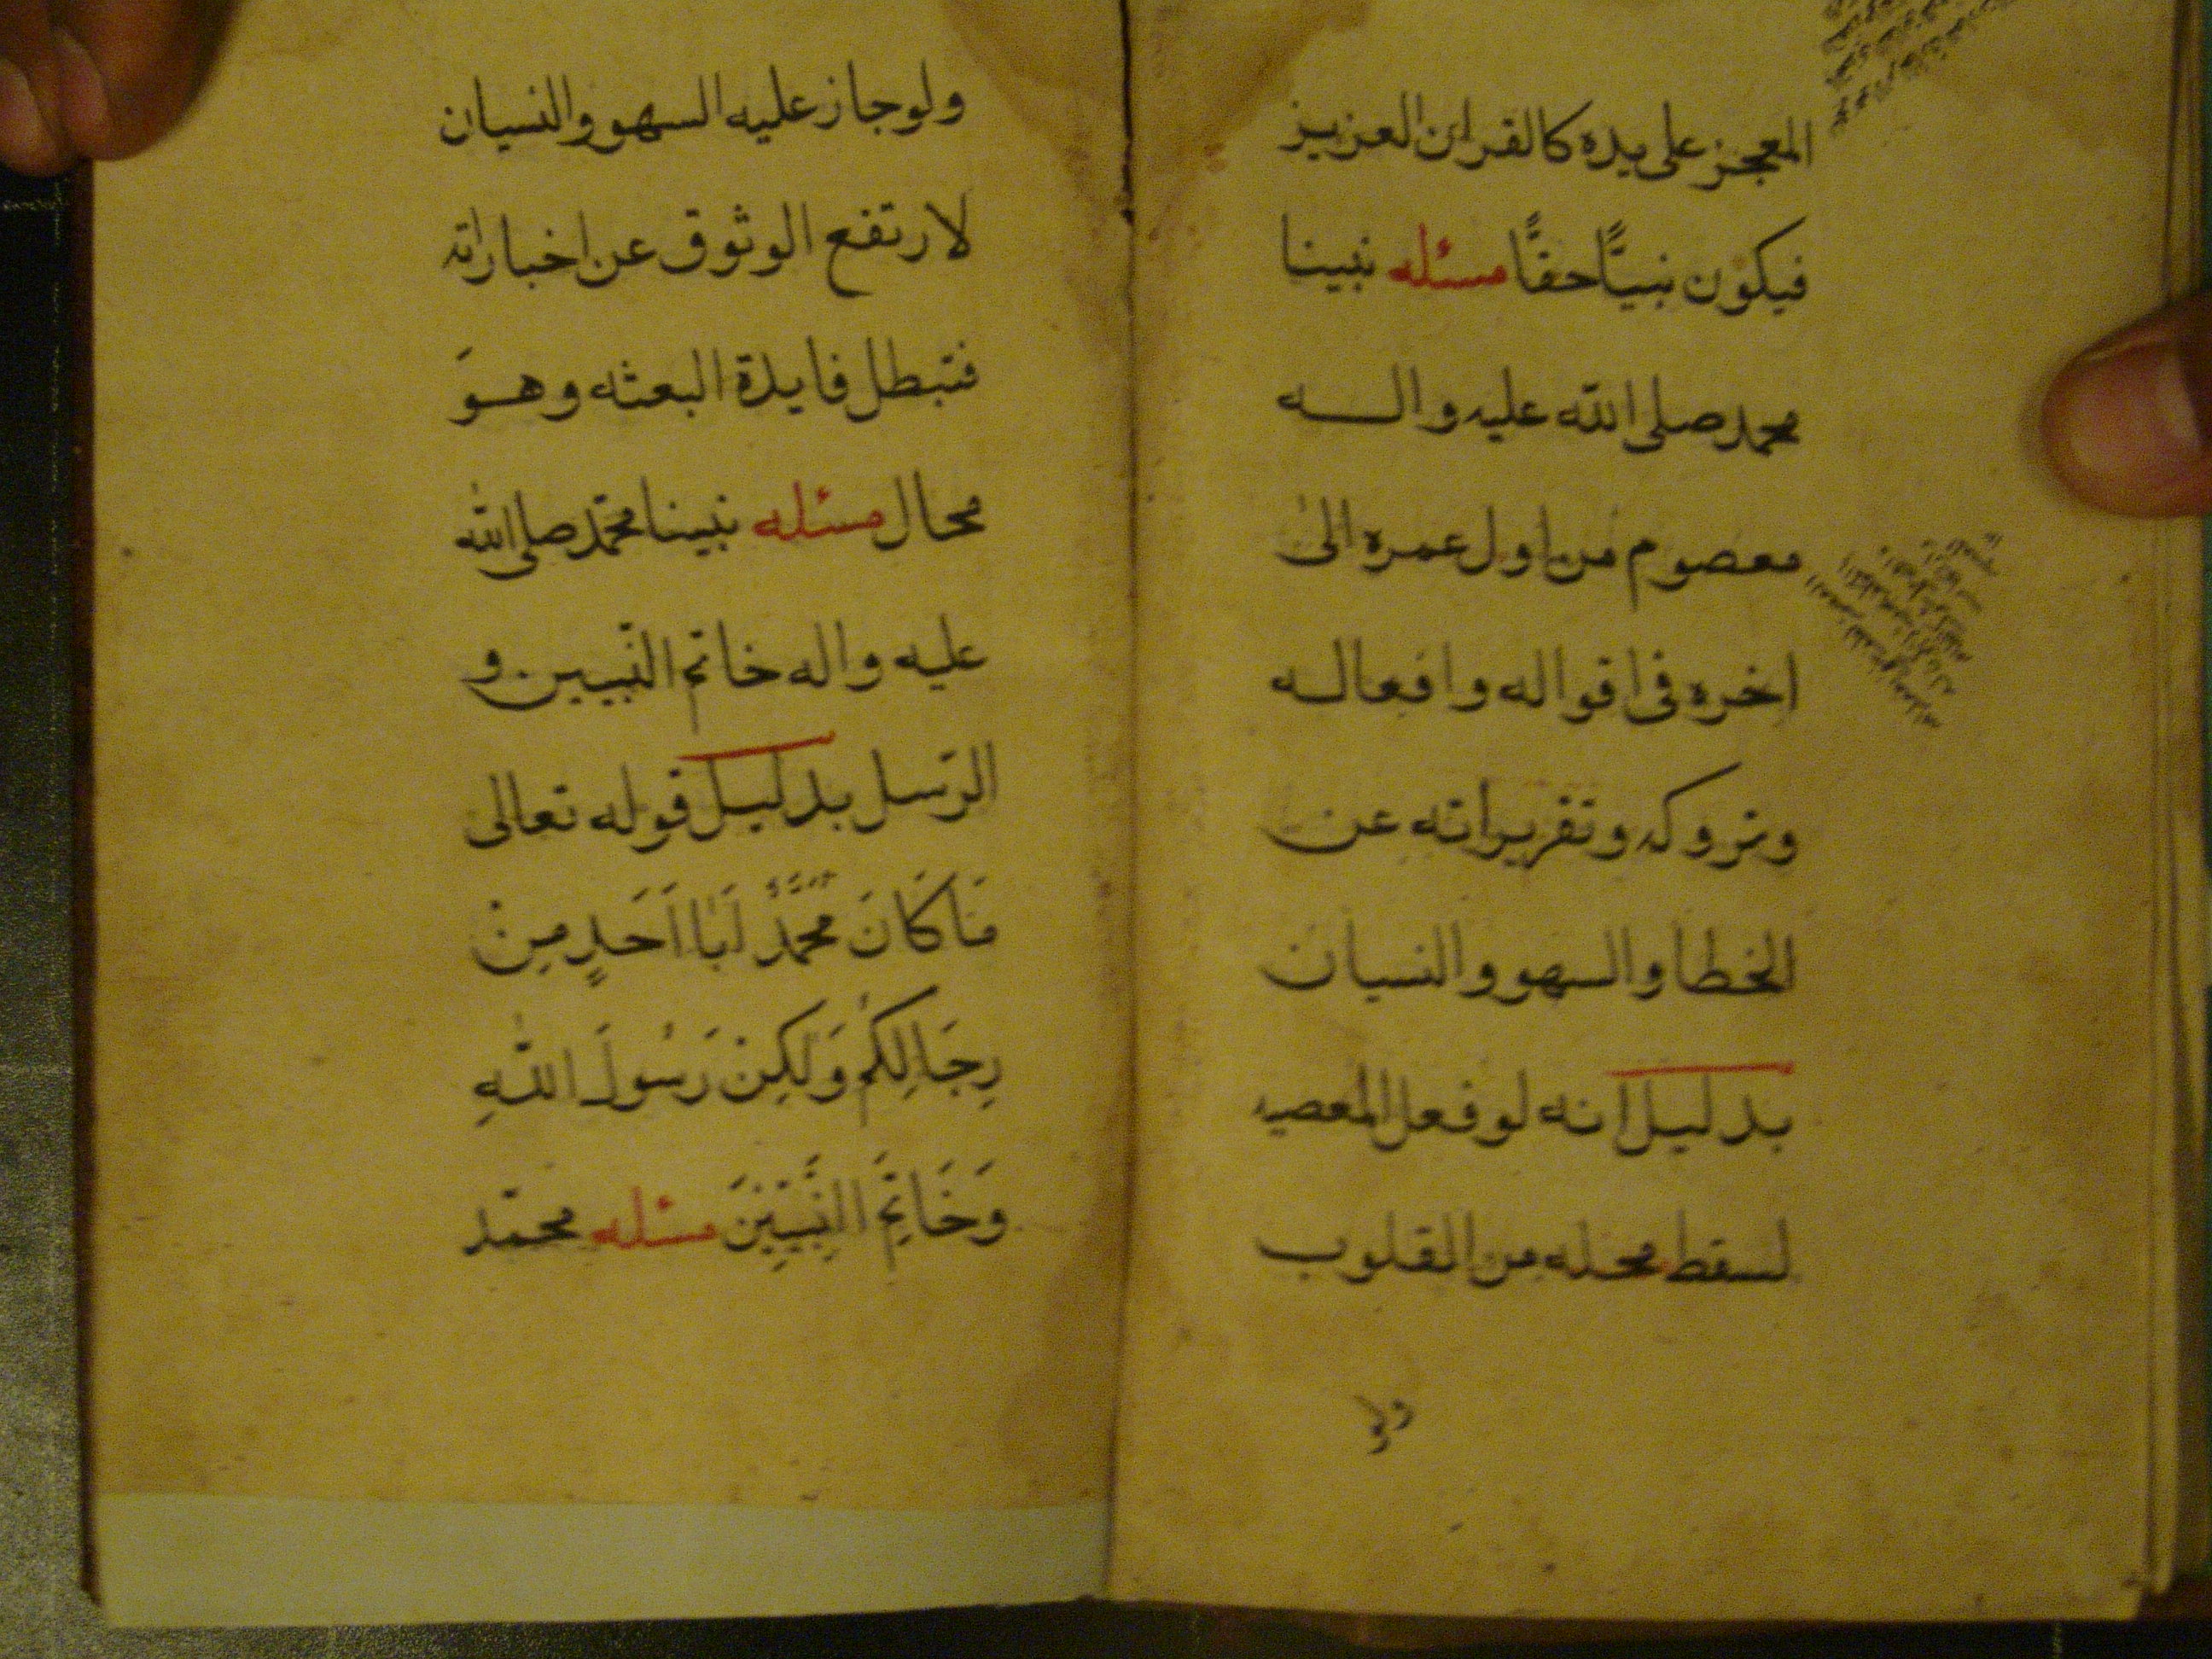 المعجز على يده كالقران العزيز
فيكون نبيًّا حقًّا مسئله نبينا
محمد صلى الله عليه واله
معصوم من اول عمره الى
اخره فى اقواله وافعاله
وتروكه وتقريراته عن
الخطا والسهو والنسيان
بدليل انه لو فعل المعصيه
لسقط محله من القلوب
ولو
ولو جاز عليه السهو والنسيان
لارتفع الوثوق عن اخباراته
فتبطل فايدة البعثه وهوَ
محال مسئله نبينا محمّد صلى الله
عليه واله خاتم النّبيين و
الرّسل بدليل قوله تعالى
مَا كَانَ مُحَمَّدٌ اَبَا اَحَدٍ مِنْ
رِجَالِكُمْ وَلٰكِنْ رَسُولَ اللّٰهِ
وَخَاتِمَ النَّبِيّٖنَ مسئله محمّد